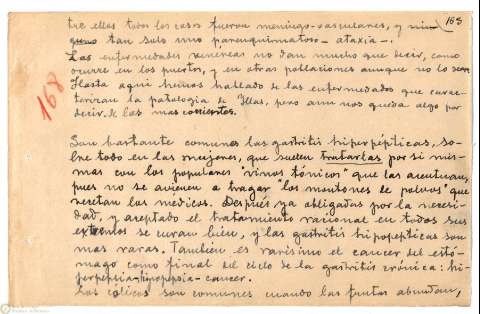 168
tre ellas todos los casos fueron meningo-vasculares, y nin-
guno tan solo uno parenquimatoso - ataxia -.
Las enfermedades venéreas no dan mucho que decir, como
ocurre en los puertos, y en otras poblaciones aunque no lo sean
Hasta aquí hemos hablado de las enfermedades que carac-
terizan la patología de Illas, pero aun nos queda algo por
decir de las mas corrientes.
168
Son bastante comunes las gastritis hiperpépticas, so-
bre todo en las mujeres, que suelen tratarlas por sí mis-
mas con los populares "vinos tónicos" que las acentuan,
pues no se avienen a tragar "los montones de polvos" que
recetan los médicos. Después ya obligadas por la necesi-
dad, y aceptado el tratamiento racional en todos sus
extremos se curan bien, y las gastritis hipopepticas son
mas raras. Tambien es rarisimo el cancer del estó-
mago como final del ciclo de la gastritis crónica: hi-
perpepsia-hipopepsia-cancer.
Los cólicos son comunes cuando las frutas abundan,